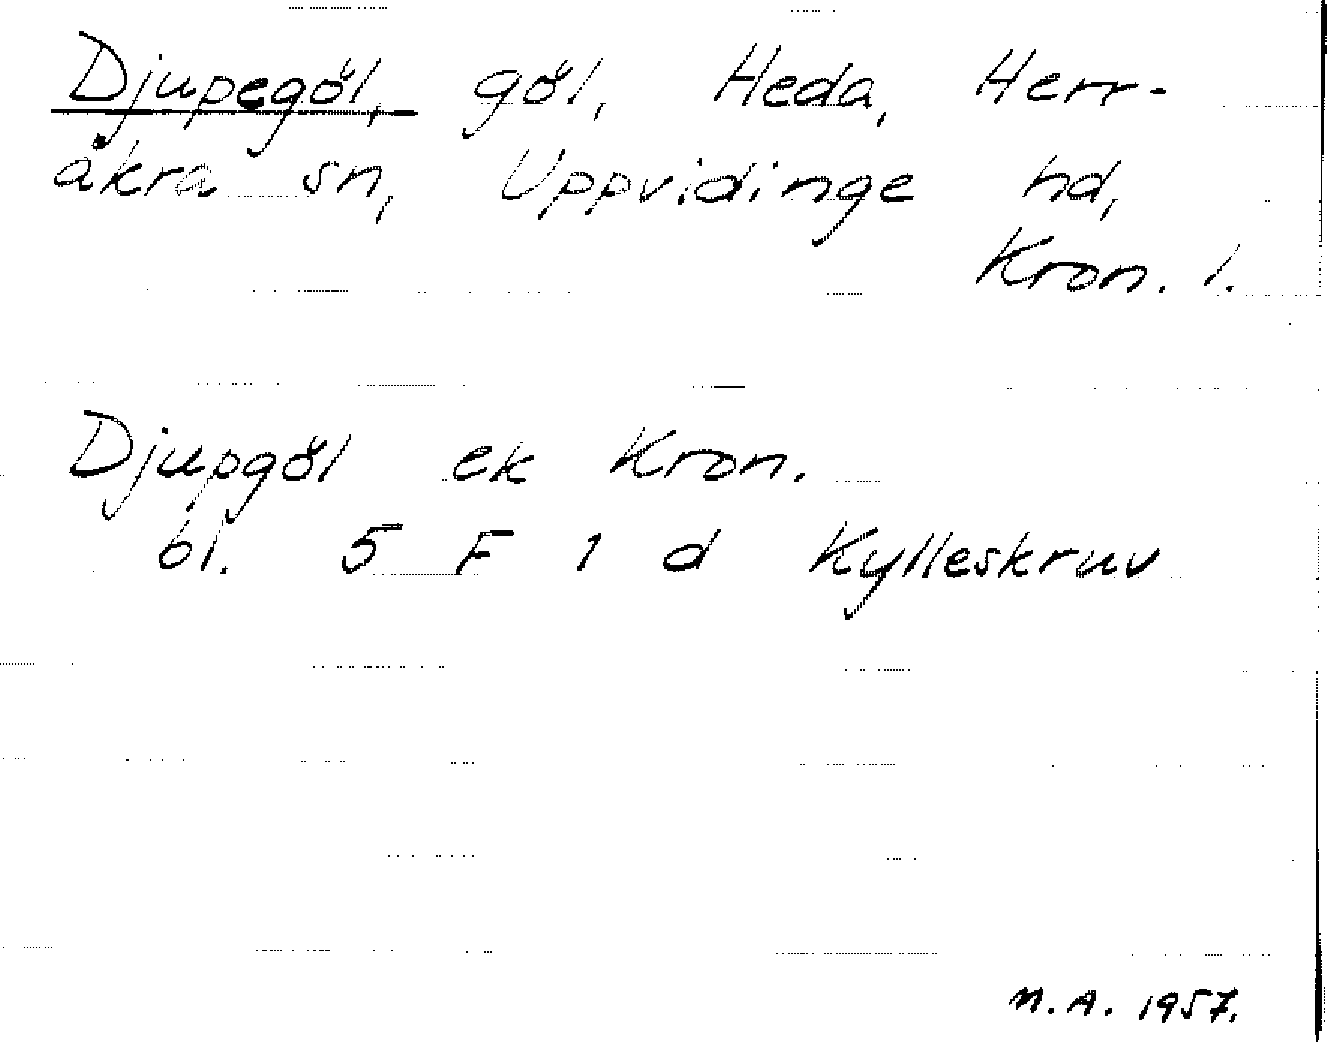 Djupegöl, göl, Heda, Herr-
åkra sn, Uppvidinge hd,
Kron. l.
Djupgöl ek Kron.
bl. 5 F 1 d Kylleskruv
N.A. 1957.